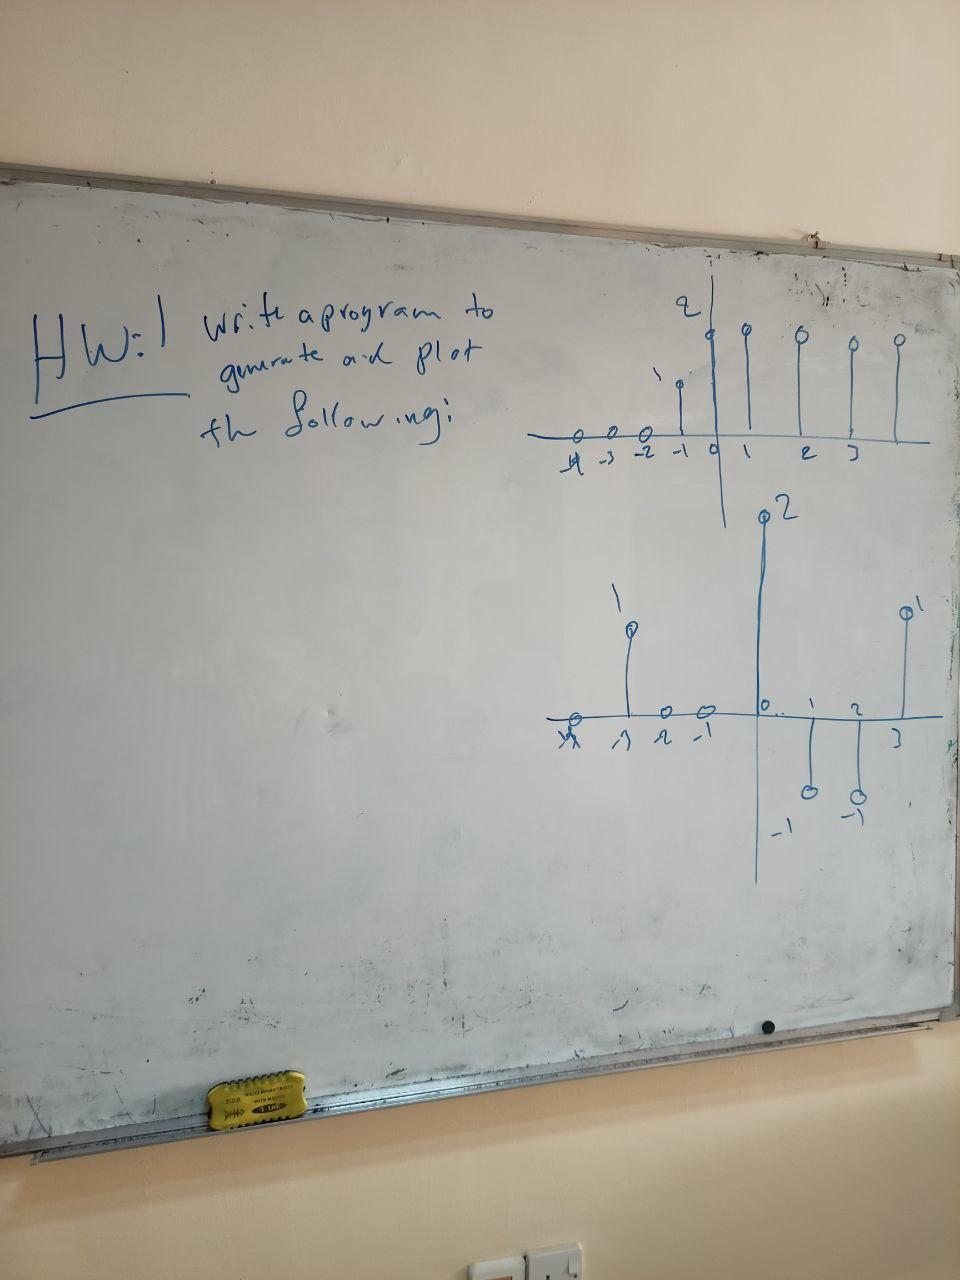 HW:1 write a program to
generate and plot
the following:
2
1
-4 -3 -2 -1 0 1 2 3
2
1
1
0 1 2
-3 -2 -1
3
-1 -1